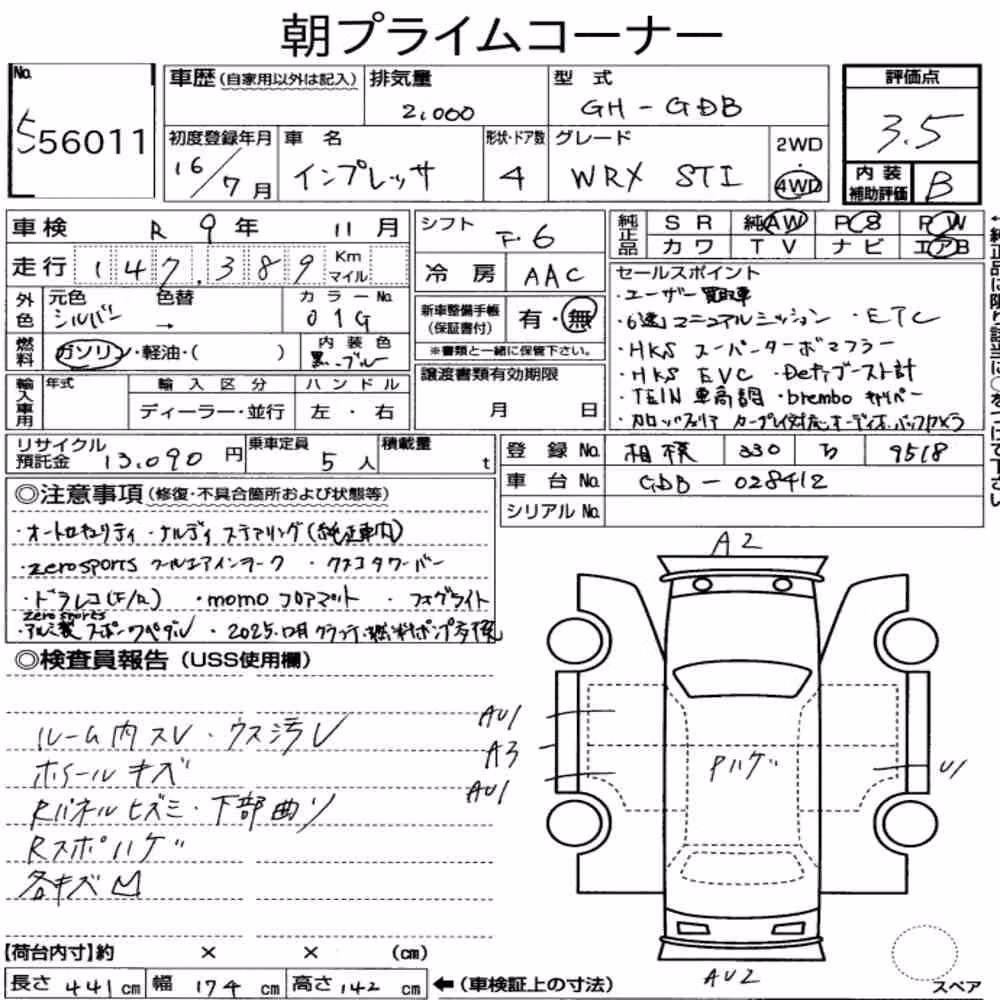 朝プライムコーナー
No.
556011
車歴 (自家用以外は記入)
排気量
2,000
型 式
GH - GDB
評価点
3.5
内装補助評価
B
初度登録年月
16/7月
車 名
インプレッサ
形状・ドア数
4
グレード
WRX STI
2WD
・
4WD
車検 R 9年 11月
走行 147,389 Km マイル
シフト F.6
冷房 AAC
純正品
SR 純AW PS PW
カワ TV ナビ エアB
外色
元色 シルバー
色替 →
カラーNo. 01G
燃料
ガソリン・軽油・( )
内装色 黒ーブルー
新車整備手帳
(保証書付)
有・無
※書類と一緒に保管下さい。
輸入車用
年式
輸入区分
ディーラー・並行
ハンドル
左・右
譲渡書類有効期限
月 日
セールスポイント
・ユーザー買取車
・6速マニュアルミッション ・ETC
・HKS スーパーターボマフラー
・HKS EVC ・Defiブースト計
・TEIN 車高調 ・brembo キャリパー
リサイクル預託金 13,090円
乗車定員 5人
積載量 t
登録No. 相模 330 5018
車台No. GDB - 028412
シリアルNo.
◎注意事項 (修復・不具合箇所および状態等)
・オートセキュリティ ・ナルディ ステアリング(純正車内)
・zerosports クールエアインテーク ・クスコタワーバー
・ドラレコ(F/R) ・momo フロアマット ・フォグライト
zerosports
・アルミ製 スポーツペダル
◎検査員報告 (USS使用欄)
ルーム内スレ・ウス汚レ
ホイールキズ
Rパネルヒズミ・下部曲リ
Rスポハゲ
各キズ凹
A2
AU1
A3
AU1
Pハゲ
U1
AU2
スペア
【荷台内寸】約 × × (cm)
長さ 441 cm 幅 174 cm 高さ 142 cm
←(車検証上の寸法)